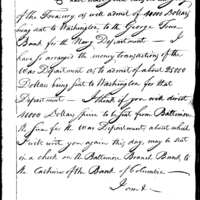 of the Treasury as will admit of 40000 Dollars
being sent to Washington to the George Town
Bank for the Navy Department — I
have so arranged the money transactions of the
War Department as to admit of about 25000
Dollars being sent to Washington for that
Department — I think if you will direct
10000 Dollars specie to be sent from Baltimore
the sum for the War Department about which
I will write you again this day, may be sent
in a check on the Baltimore Branch Bank, to
the Cashier of the Bank of Columbia —
I am &c